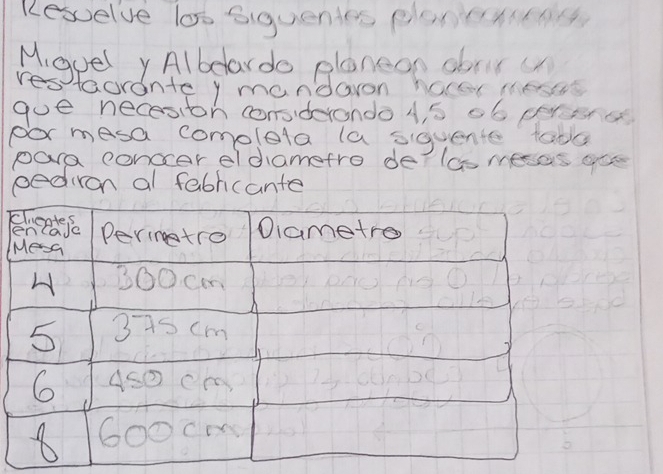 Resuelve los siguentes
Miguel y Albelardo planean abrir un
restaorante y mandaron hacer mesas
que necesitan considerando 4,5 o 6 personas
por mesa completa la siguente tabla
para conocer el diametro de las mesas que
pediran al fabricante
Clientes en caJa Mesa Perimetro Diametro
4 300 cm
5 375 cm
6 450 cm
8 600 cm